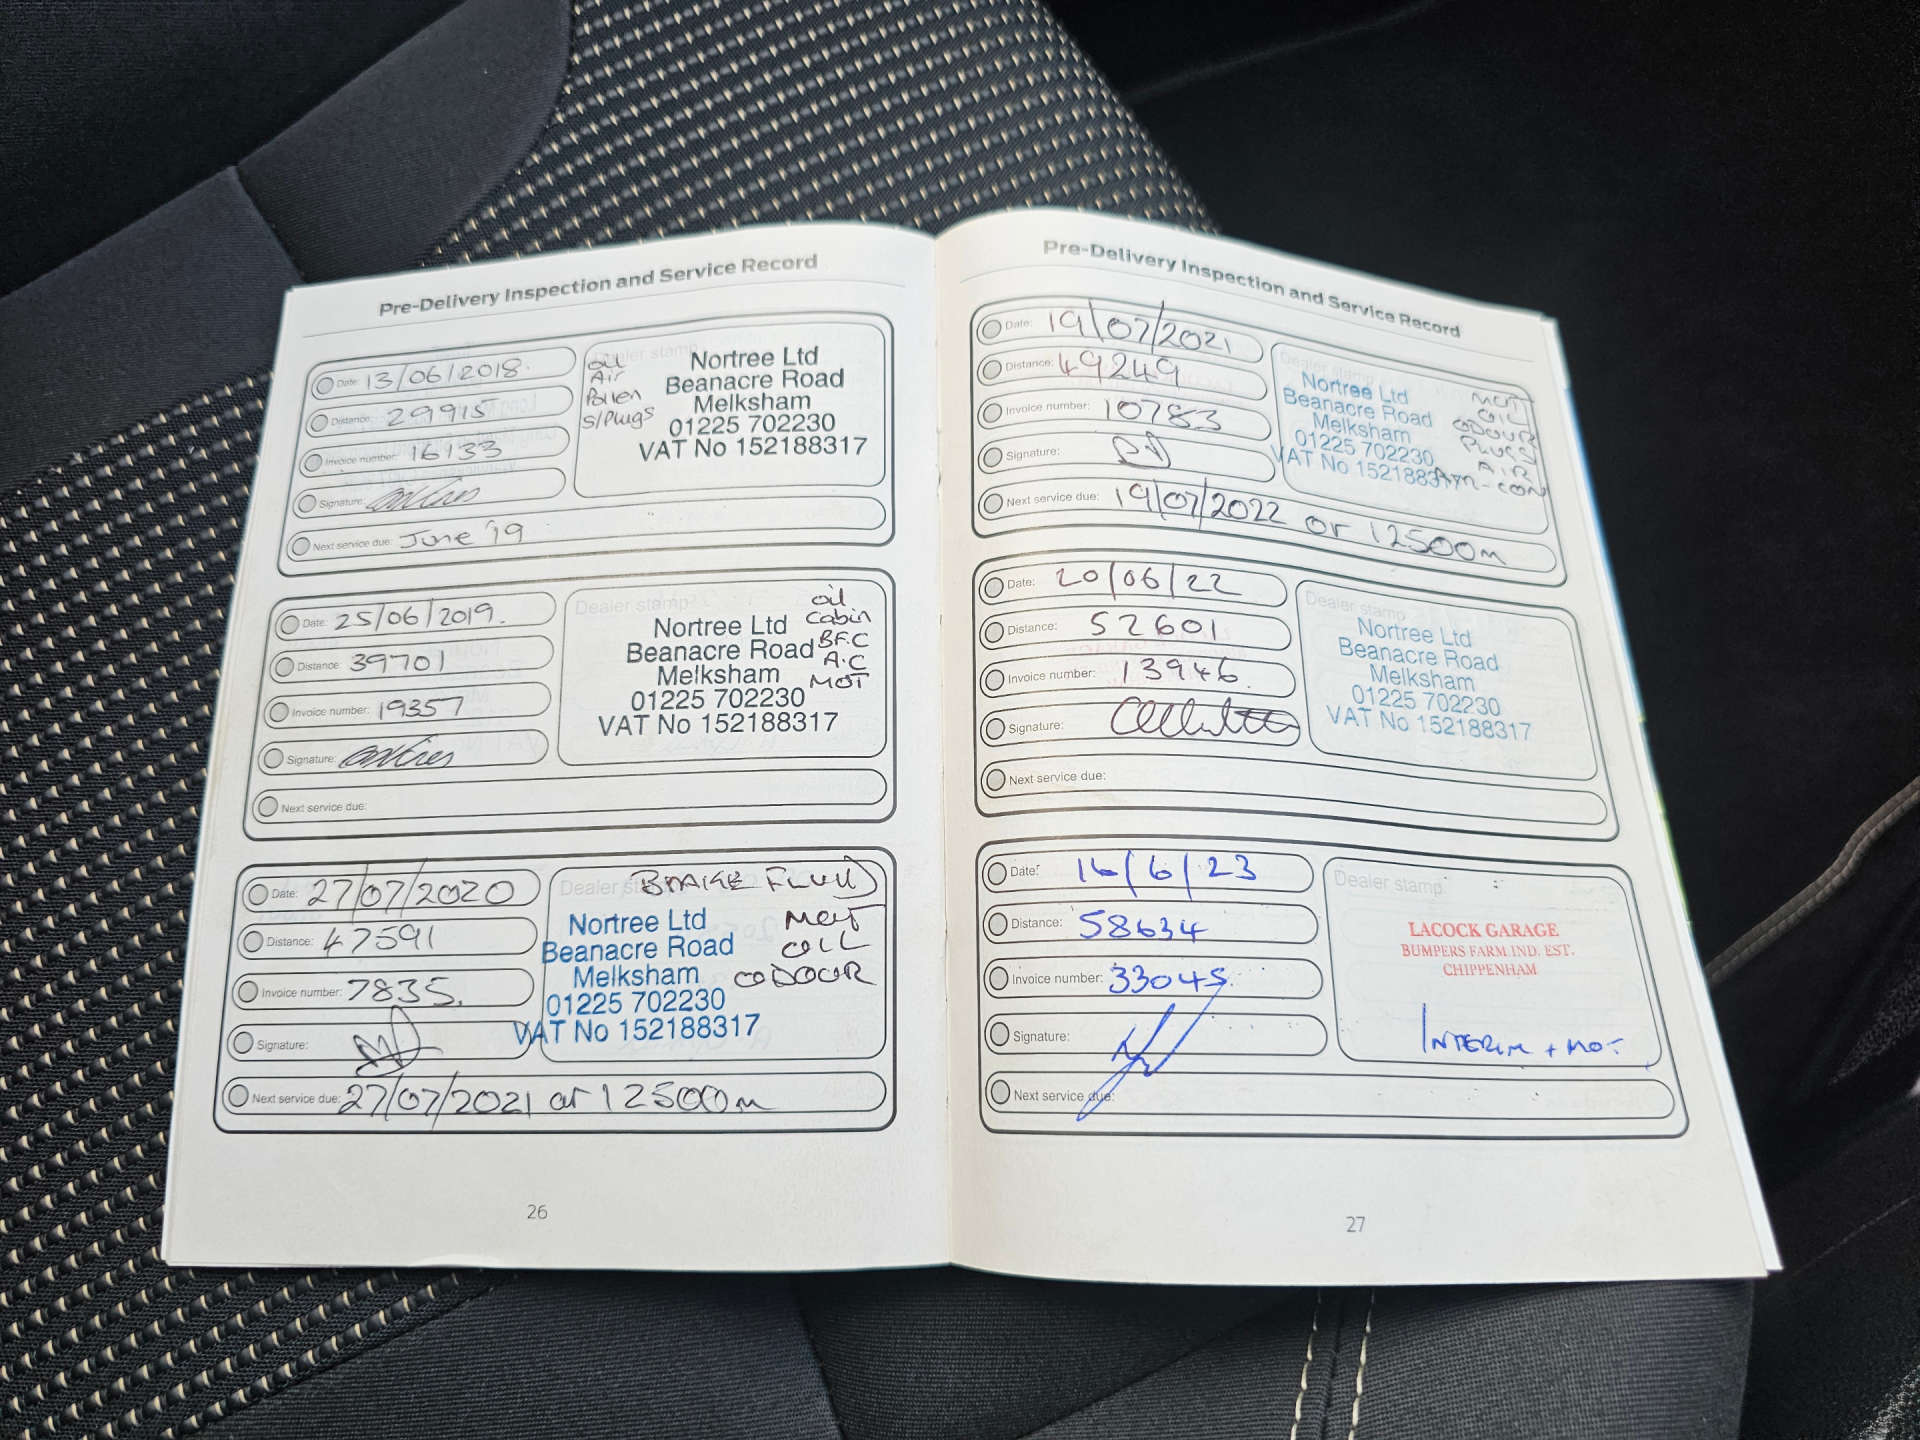 Pre-Delivery Inspection and Service Record
Date: 13/06/2018.
Distance: 29915
Invoice number: 16133
Signature:
Next service due: June '19
Dealer stamp
oil
Air
Pollen
S/Plugs
Nortree Ltd
Beanacre Road
Melksham
01225 702230
VAT No 152188317
Date: 25/06/2019.
Distance: 39701
Invoice number: 19357
Signature:
Next service due:
Dealer stamp
Nortree Ltd
Beanacre Road
Melksham
01225 702230
VAT No 152188317
oil
Cabin
B.F.C
A.C
MOT
Date: 27/07/2020
Distance: 47591
Invoice number: 7835.
Signature:
Next service due: 27/07/2021 or 12500m
Dealer stamp
BRAKE FLUID
Nortree Ltd
Beanacre Road
Melksham
01225 702230
VAT No 152188317
MOT
OIL
ODOUR
26
Pre-Delivery Inspection and Service Record
Date: 19/07/2021
Distance: 49249
Invoice number: 10783
Signature:
Next service due: 19/07/2022 or 12500m
Dealer stamp
Nortree Ltd
Beanacre Road
Melksham
01225 702230
VAT No 1521883
MOT
OIL
ODOUR
PLUGS
AIR
AIR-CON
Date: 20/06/22
Distance: 52601
Invoice number: 13946.
Signature:
Next service due:
Dealer stamp
Nortree Ltd
Beanacre Road
Melksham
01225 702230
VAT No 152188317
Date: 16/6/23
Distance: 58634
Invoice number: 33045.
Signature:
Next service due:
Dealer stamp
LACOCK GARAGE
BUMPERS FARM IND. EST.
CHIPPENHAM
INTERIM + MOT
27